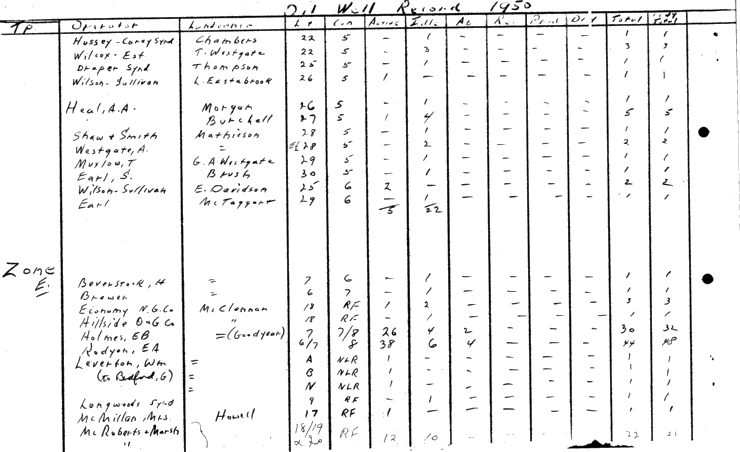 Oil Well Record 1950
TP Operator Landowner Lot Con Active Idle Ab Total
Hussey-Corey Synd Chambers 22 5 — 1 — — — — 1 1
Wilcox-Est T. Westgate 22 5 — 3 — — — — 3 3
Draper Synd Thompson 25 5 — 1 — — — — 1 1
Wilson-Sullivan L. Eastabrook 26 5 1 — — — — — 1 1
Heal, A.A. Morgan 26 5 — 1 — — — — 1 1
Burchell 27 5 1 4 — — — — 5 5
Shaw & Smith Mathieson 28 5 — 1 — — — — 1 1
Westgate, A. " 28 5 — 2 — — — — 2 2
Muxlow, T G. A Westgate 29 5 — 1 — — — — 1 1
Earl, S. Brush 30 5 — 1 — — — — 1 1
Wilson-Sullivan E. Davidson 25 6 2 — — — — — 2 2
Earl McTaggart 29 6 — 1 — — — — 1 1
5 22
Zone
E.
Beverstock, H " 7 6 — 1 — — — — 1 1
Brewer " 6 7 — 1 — — — — 1 1
Economy N.G.Co McClennan 18 RF 1 2 — — — — 3 3
Hillside O&G Co " 18 RF — — —
Holmes, EB =(Goodyear) 7 7/8 26 4 2 — — — 30 32
Rodyon, EA 6/7 8 38 6 4 — — — 44 48
Laverton, Wm = A NLR 1 — — — — — 1 1
(to Bedford, G) = B NLR 1 — — — — — 1 1
= N NLR 1 — — — — — 1 1
Longwoods Synd 9 RF — 1 — — — — 1 1
McMillan, Mrs. Howell 17 RF 1 — — — — — 1 1
McRoberts & Marsh 18/19
" & 20 RF 12 10 — — — 22